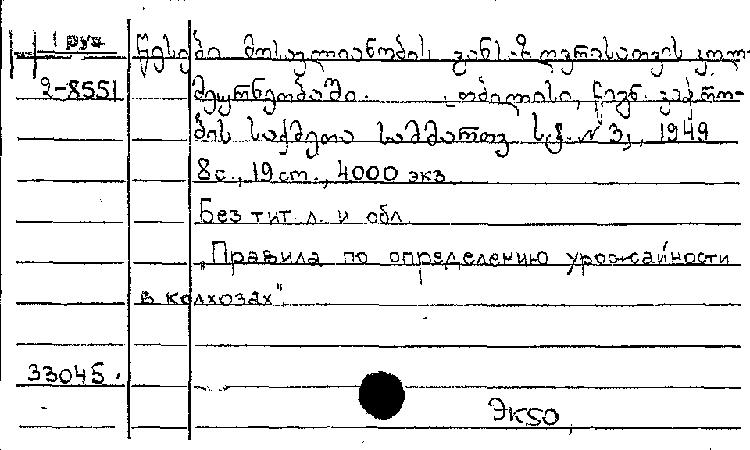 1 груз
2-8551
წესები მოსავლიანობის განსაზღვრისათვის კოლ-
მეურნეობაში. თბილისი, წიგნ. ვაჭრო-
ბის საქმეთა სამმართვ. ს.ქ. №3, 1949
8 с., 19 см., 4000 экз.
Без тит. л. и обл.
„Правила по определению урожайности
в колхозах".
33045.
ЭК50